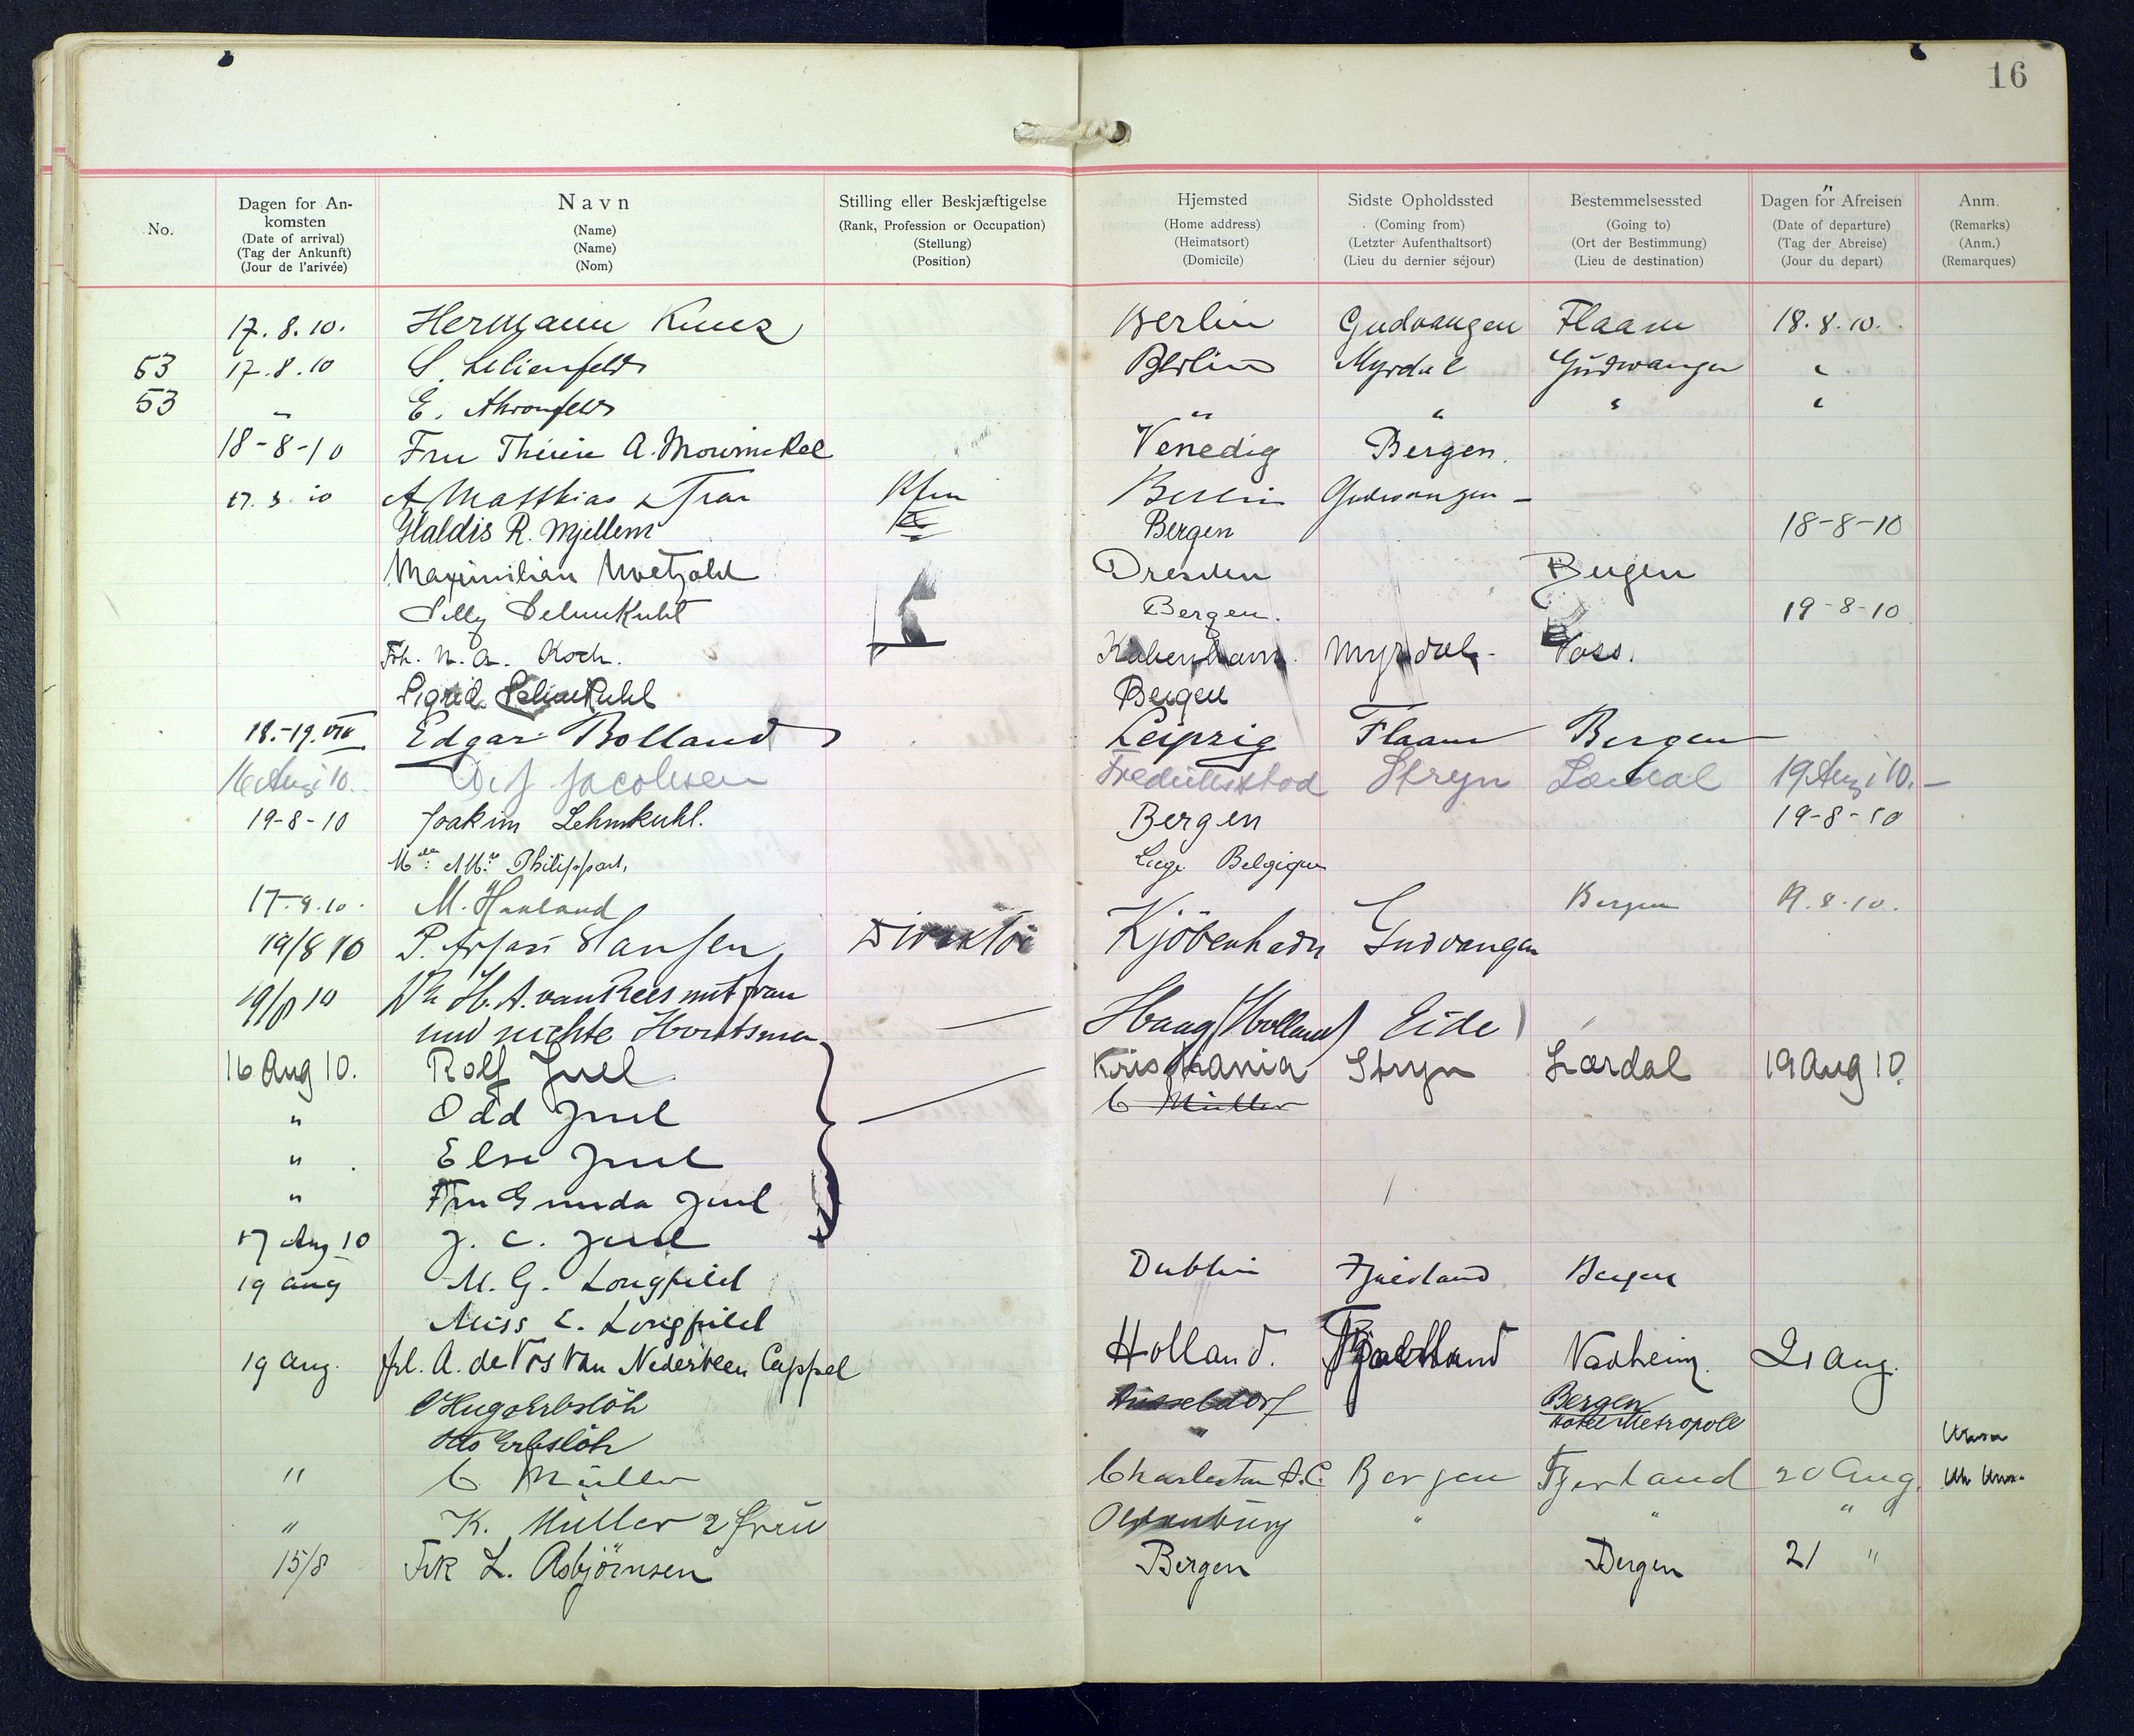 16
No.
Dagen for An-
komsten
(Date of arrival)
(Tag der Ankunft)
(Jour de l'arivée)
Navn
(Name)
(Name)
(Nom)
Stilling eller Beskjæftigelse
(Rank, Profession or Occupation)
(Stellung)
(Position)
Hjemsted
(Home address)
(Heimatsort)
(Domicile)
Sidste Opholdssted
(Coming from)
(Letzter Aufenthaltsort)
(Lieu du dernier séjour)
Bestemmelsessted
(Going to)
(Ort der Bestimmung)
(Lieu de destination)
Dagen for Afreisen
(Date of departure)
(Tag der Abreise)
(Jour du depart)
Anm.
(Remarks)
(Anm.)
(Remarques)
17. 8. 10. Hermann Berlin Gudvangen Flaam 18. 8. 10.
53 17. 8. 10 S. Lilienfeld Berlin Myrdal Gudwangen "
53 " E. Ahronfeld " " " "
18-8-10 Fru A. Mowinckel Venedig Bergen.
17. 8. 10 A Matthias & Frau Kfm Berlin Gudwangen -
Haldis R. Mjellem Bergen 18-8-10
Maximilian Dresden Bergen
Lehmkuhl Bergen. 19-8-10
N. A. Koch. København. Myrdal - Voss.
Sigrid Lehmkuhl Bergen
18.-19. VIII Edgar Bolland Leipzig Flaam Bergen
16 Aug 10. Jacobsen Fredriksstad Stryn Lærdal 19 Aug 10. -
19-8-10 Joakim Lehmkuhl. Bergen 19-8-10
Philippart, Liege Belgique
M. Haaland Bergen 19. 8. 10.
19/8 10 P. Hansen Direktör Kjöbenhavn Gudvangen
19/8 10 H. A. van Rees mit frau
und nichte Haag (Holland) Eide
16 Aug 10. Rolf Juel Kristiania Stryn Lærdal 19 Aug 10.
" Odd Juel C Müller
" Else Juel
" Fru Gunda Juel
17 Aug 10 J. C. Juel
19 aug M. G. Longfield Dublin Fjærland Bergen
Miss E. Longfield
19 aug. frl. A. de Vos van Nederveen Cappel Holland. Vadheim. 21 aug.
Hugo Erbslöh Düsseldorf Bergen
Hotel Metropole
Otto Erbslöh "
" C Müller Charleston S.C. Bergen Fjerland 20 Aug.
" K. Müller & frau Oldenburg " " "
15/8 Frk L. Asbjörnsen Bergen Bergen 21 "